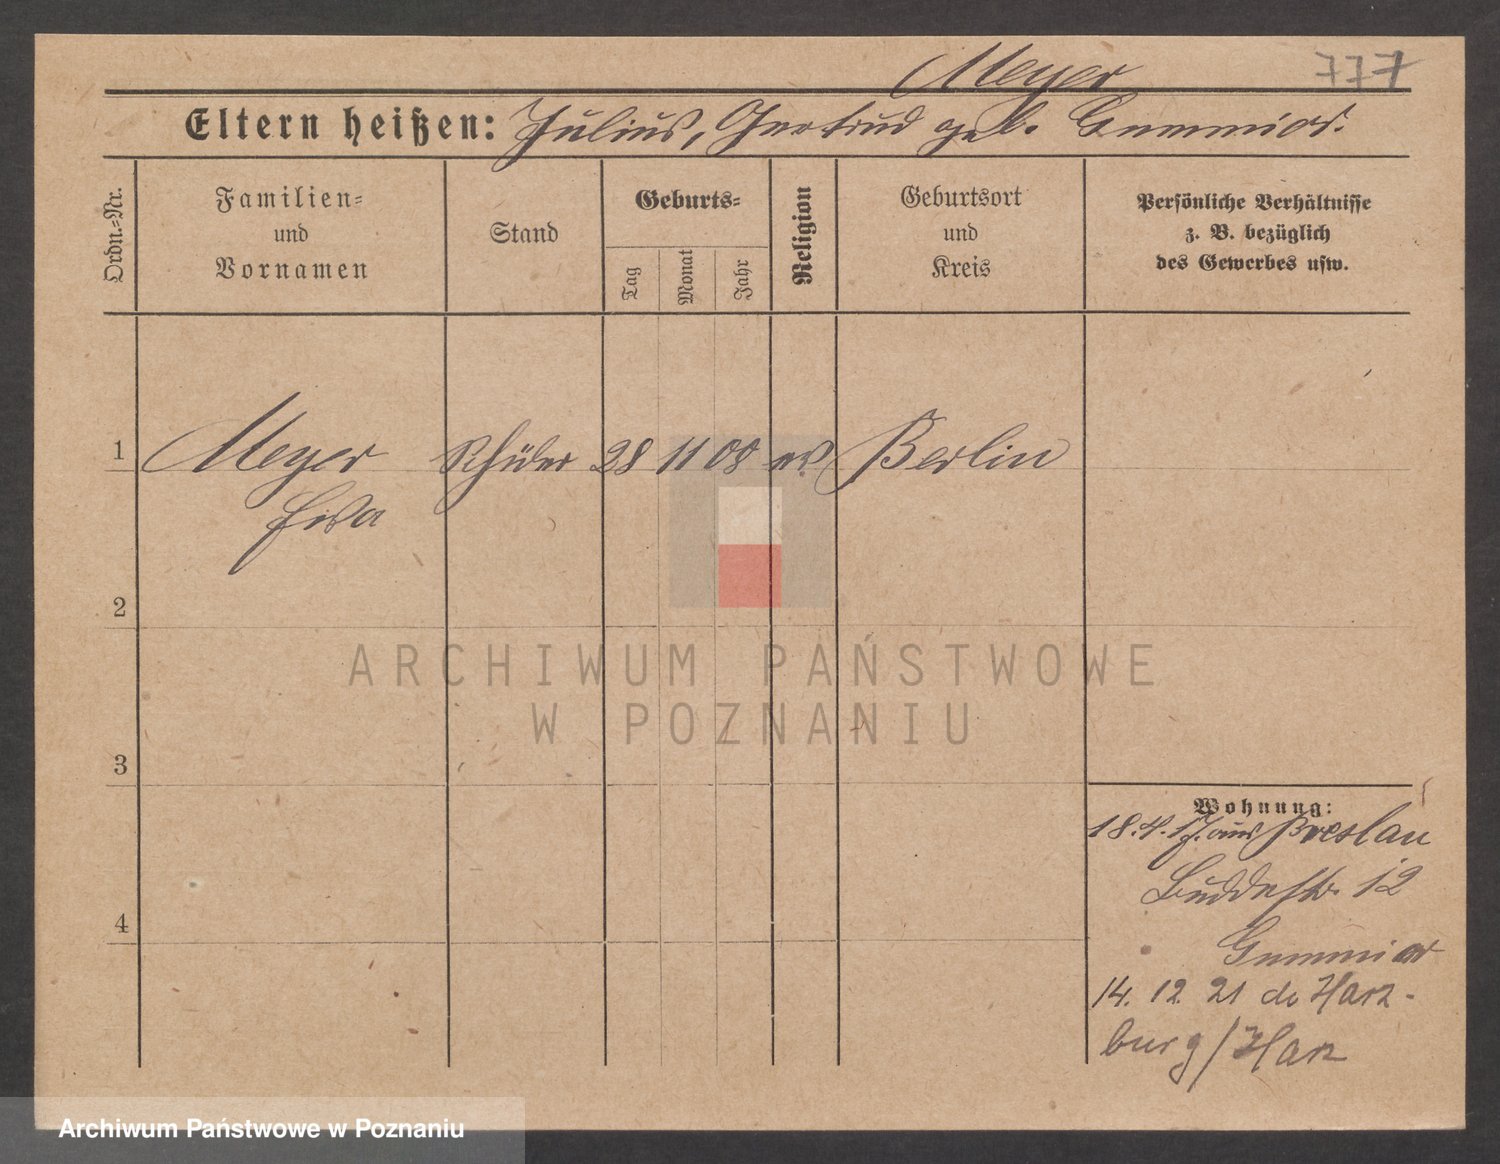 Meyer
777
Eltern heißen: Julius, Gertrud geb. Gummior.
Ordn.-Nr.
Familien-
und
Vornamen
Stand
Geburts-
Tag
Monat
Jahr
Religion
Geburtsort
und
Kreis
Persönliche Verhältnisse
z. B. bezüglich
des Gewerbes usw.
1
Meyer Schüler 28 11 08 ev Berlin
2
ARCHIWUM PAŃSTWOWE
W POZNANIU
3
Wohnung:
18.4.17. aus Breslau
Buddestr. 12
Gummior
14. 12. 21 Harz-
burg/Harz
4
Archiwum Państwowe w Poznaniu